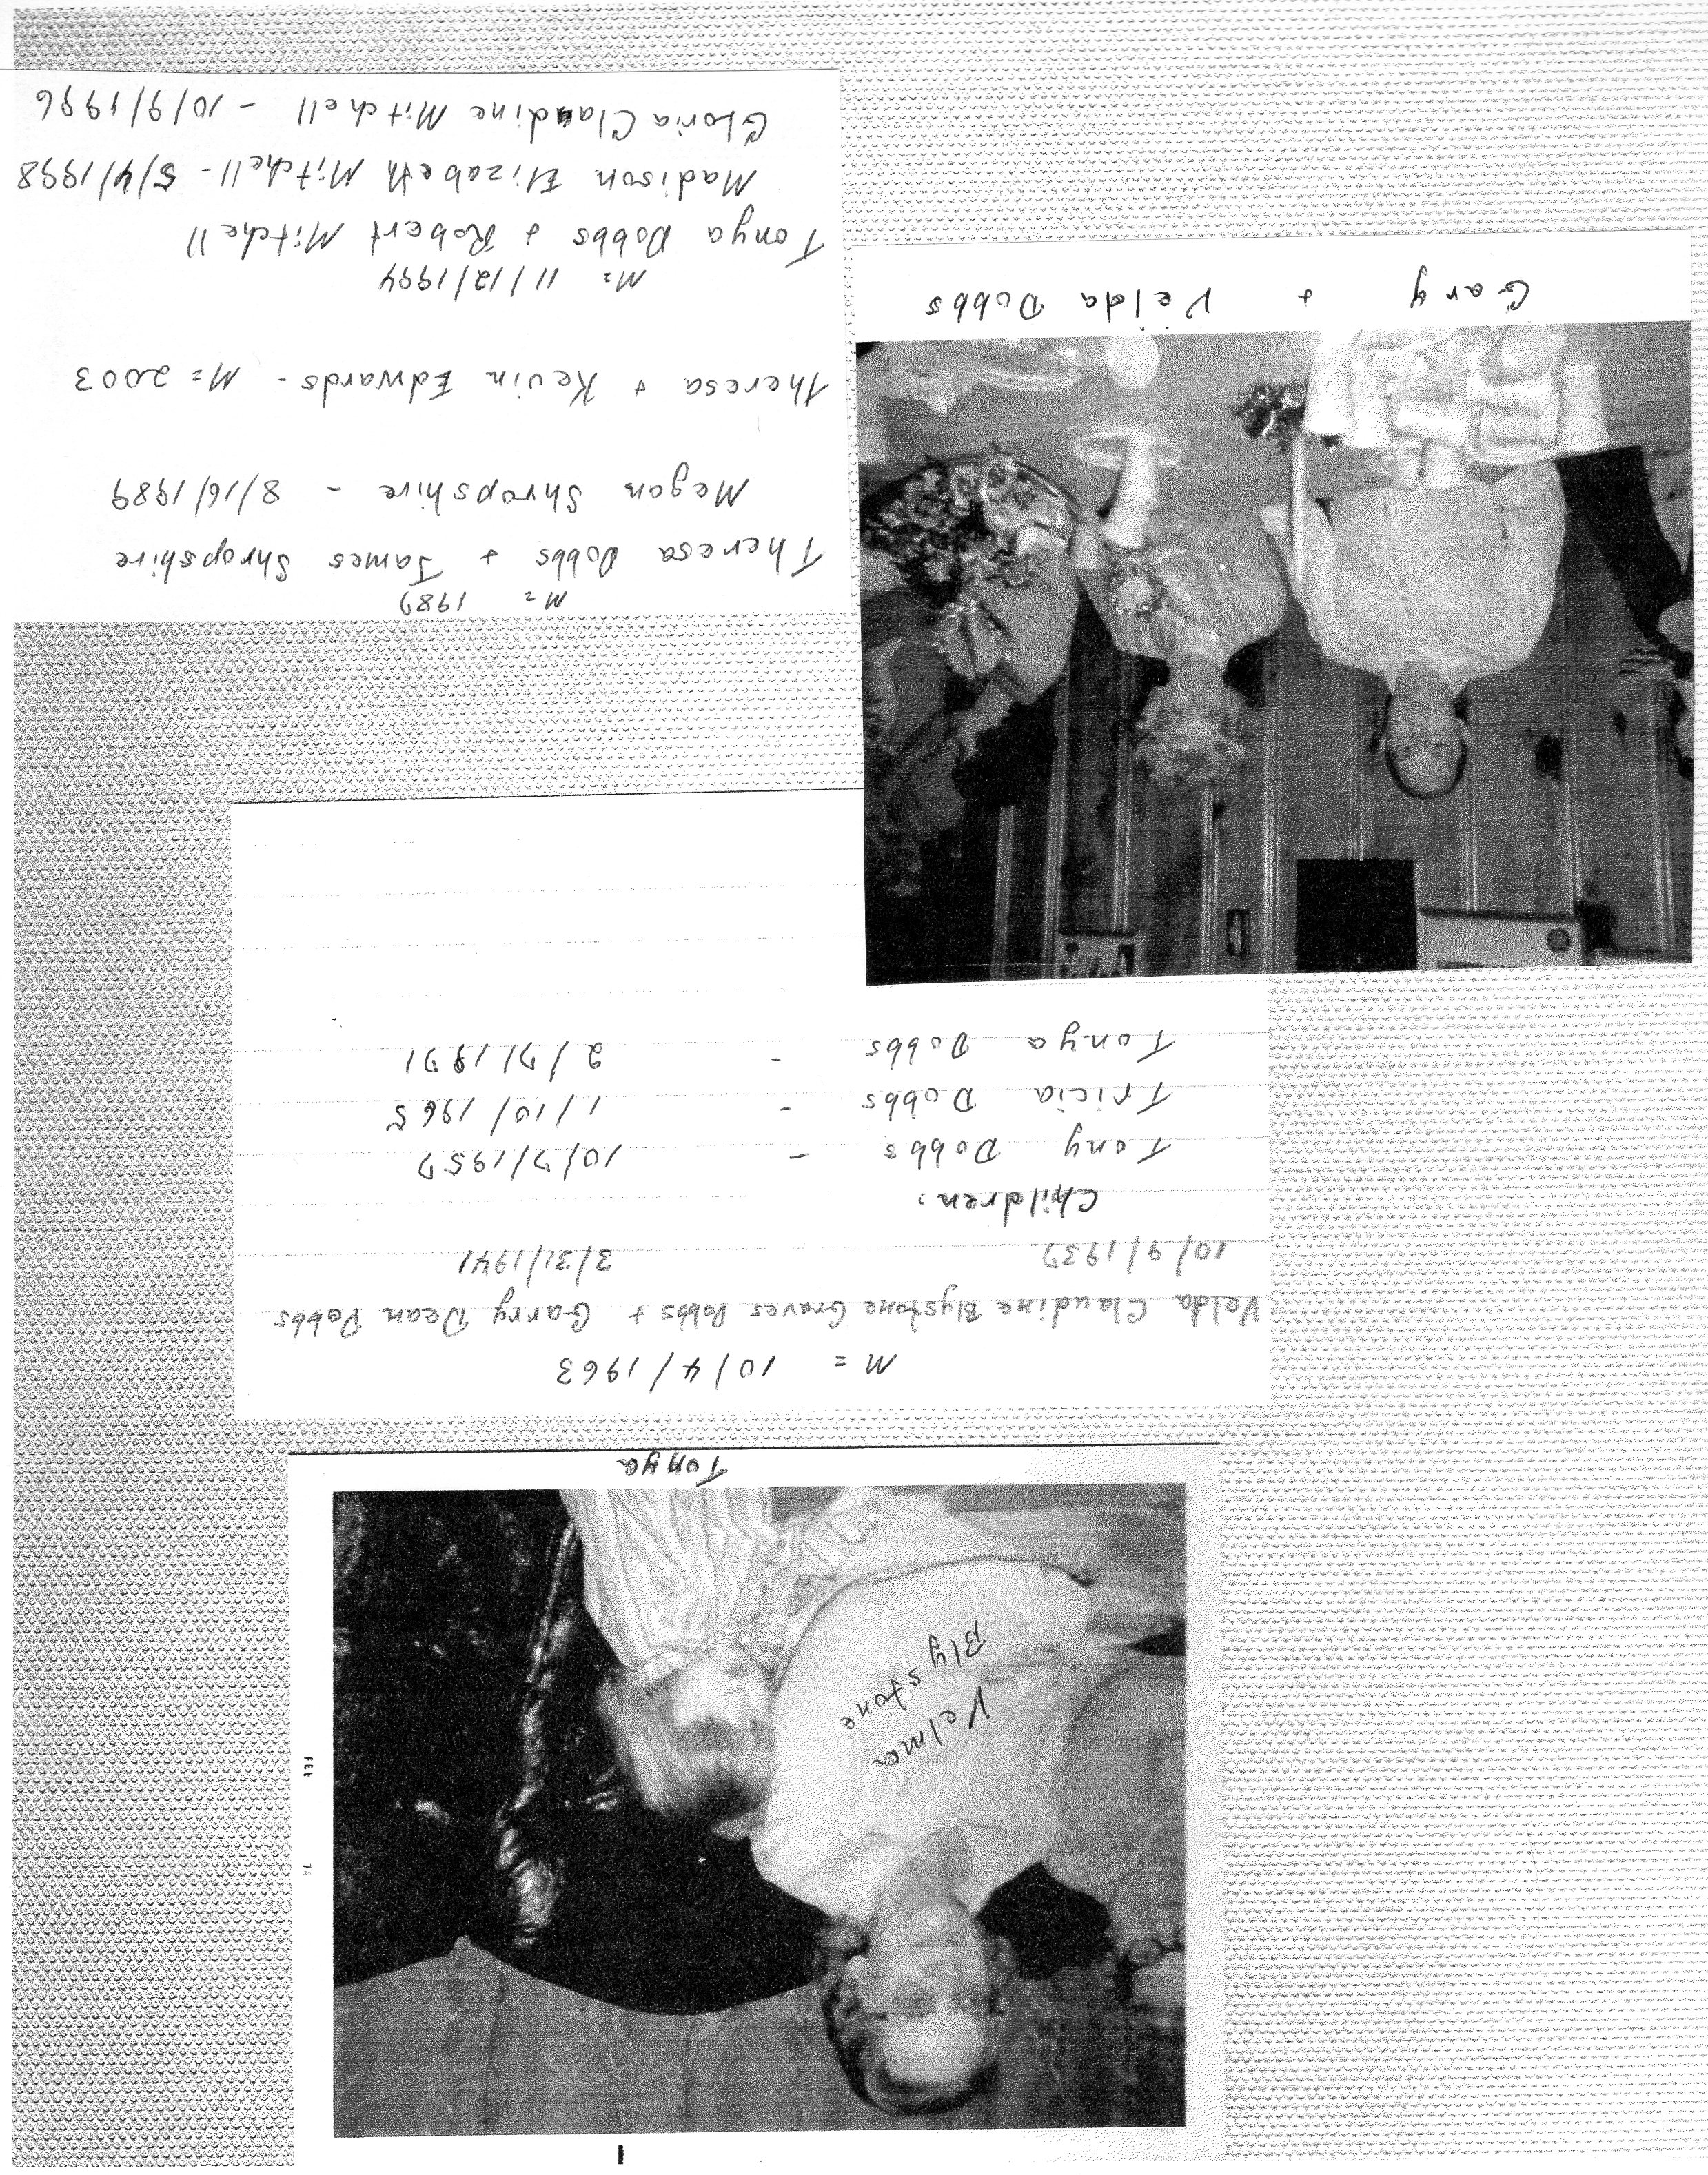 Velma
Blystone
FEB 74
Tonya
M = 10/4/1963
Velda Claudine Blystone Graves Dobbs + Garry Dean Dobbs
10/9/1937 3/31/1941
Children:
Tony Dobbs - 10/7/1957
Tricia Dobbs - 1/10/1965
Tonya Dobbs - 2/7/1971
Gary + Velda Dobbs
M = 1987
Theresa Dobbs + James Shropshire
Megan Shropshire - 8/16/1989
Theresa + Kevin Edwards - M = 2003
M = 11/12/1994
Tonya Dobbs + Robert Mitchell
Madison Elizabeth Mitchell - 5/4/1998
Gloria Claudine Mitchell - 10/9/1996